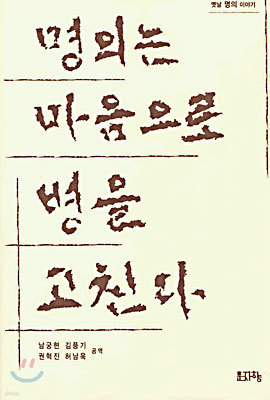 옛날 명의 이야기
명의는
마음으로
병을
고친다
남궁현 김풍기
권혁진 허남욱 공역
문자향